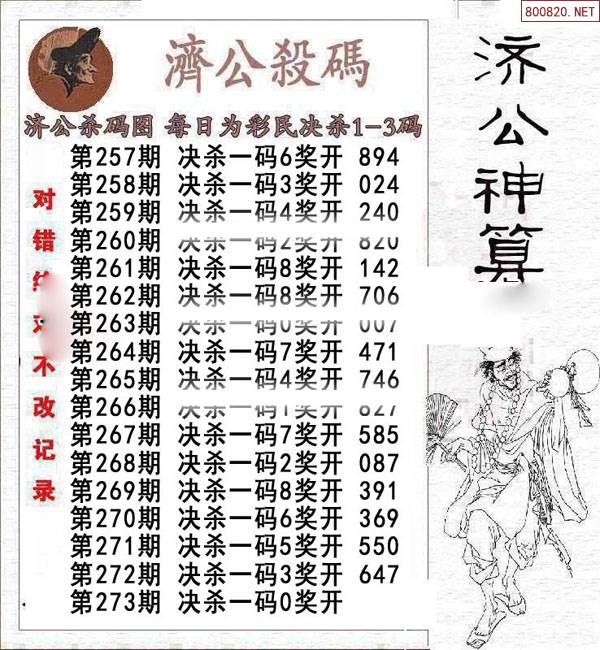 800820.NET
濟公殺碼
济公杀码图 每日为彩民决杀1-3码
第257期 决杀一码6奖开 894
第258期 决杀一码3奖开 024
第259期 决杀一码4奖开 240
第260期 决杀一码2奖开 820
第261期 决杀一码8奖开 142
第262期 决杀一码8奖开 706
第263期 决杀一码0奖开 007
第264期 决杀一码7奖开 471
第265期 决杀一码4奖开 746
第266期 决杀一码1奖开 827
第267期 决杀一码7奖开 585
第268期 决杀一码2奖开 087
第269期 决杀一码8奖开 391
第270期 决杀一码6奖开 369
第271期 决杀一码5奖开 550
第272期 决杀一码3奖开 647
第273期 决杀一码0奖开
对错不改记录
济公神算